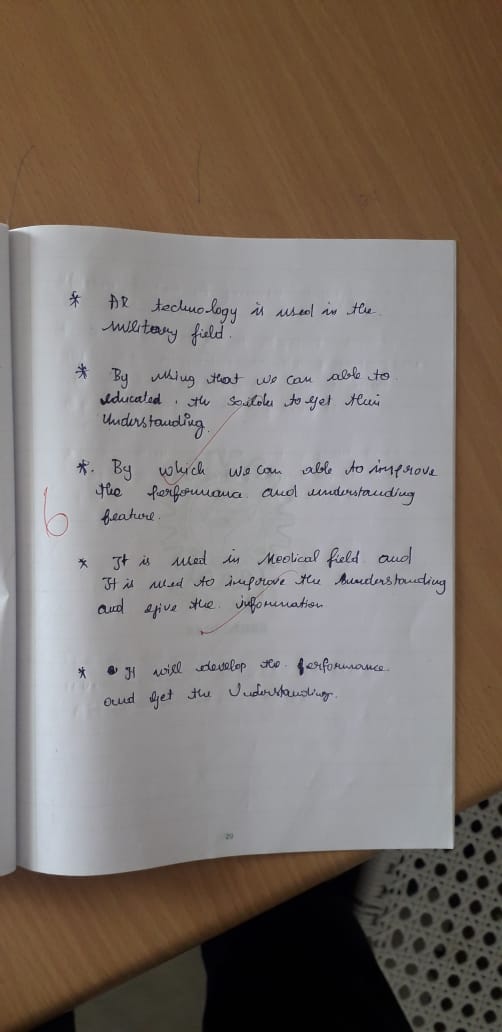 * AR technology is used in the
military field.
* By using that we can able to
educated, the soilder to get their
Understanding.
*. By which we can able to improve
the performana and understanding
feature.
6
* It is used in Medical field and
It is used to improve the understanding
and give the information
* It will develop the performance
and get the Understanding.
29